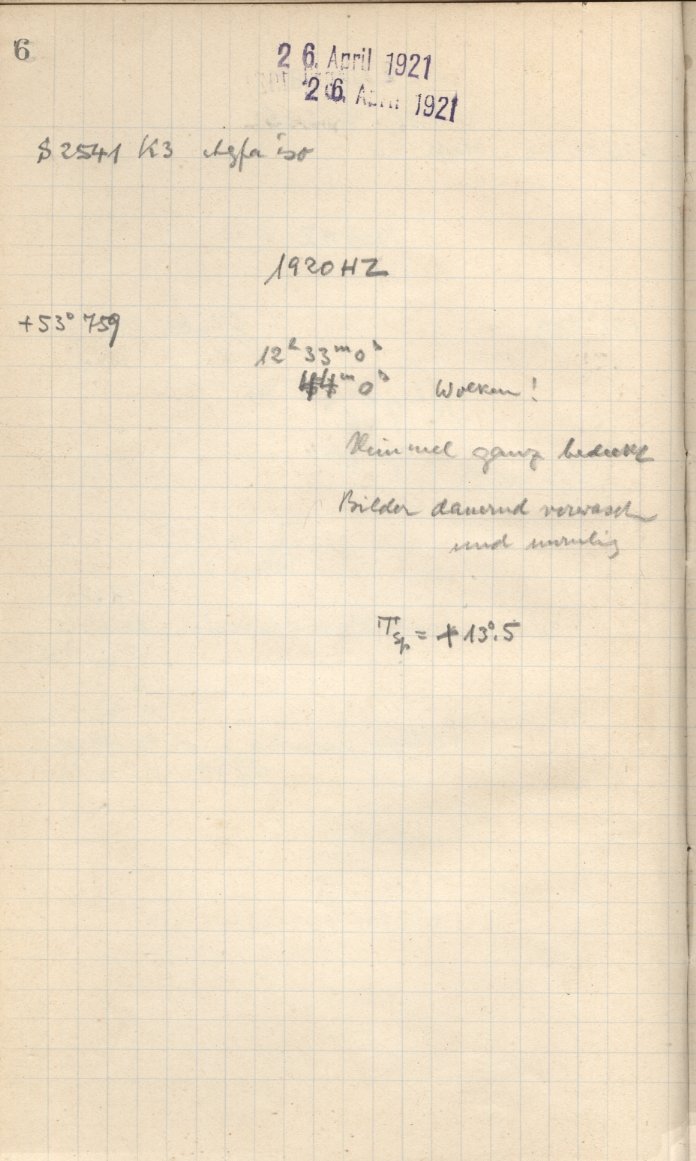 6
26. April 1921
26. April 1921
S 2541 K3 Agfa iso
1920 HZ
+53° 759
12ʰ 33ᵐ 0ˢ
44ᵐ 0ˢ Wolken!
Himmel ganz bedeckt
Bilder dauernd verwaschen
und unruhig
T_Sp = +13°.5